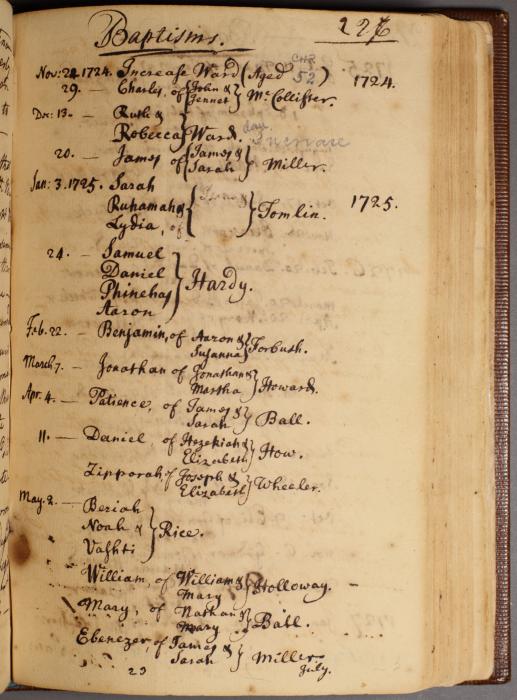 Baptisms. 226
Nov: 28. 1724. Increase Ward (Aged 52) 1724.
29. — Charles, of John & Jennet } McCollister.
Dec: 13. — Ruth &
Robecca } Ward. dau. Increase
20. — James of James & Sarah } Miller.
Jan: 3. 1725. Sarah
Ruhamah & 1725.
Lydia, of { } Tomlin.
24. — Samuel
Daniel
Phinehas
Aaron } Hardy.
Feb. 22. — Benjamin, of Aaron &
Susanna } Forbush.
March 7. — Jonathan of Jonathan &
Martha } Howard.
Apr. 4. — Patience, of James &
Sarah } Ball.
11. — Daniel of Hezekiah &
Elizabeth } How.
Zipporah of Joseph &
Elizabeth } Wheeler.
May. 2. — Beriah
Noah &
Vashti } Rice.
William, of William &
Mary } Holloway.
Mary, of Nathan &
Mary } Ball.
Ebenezer, of James &
Sarah } Miller
23 July.